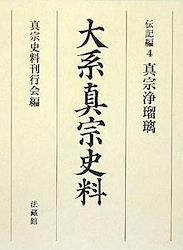 伝記編4
真宗浄瑠璃
大系真宗史料
真宗史料刊行会編
法藏館